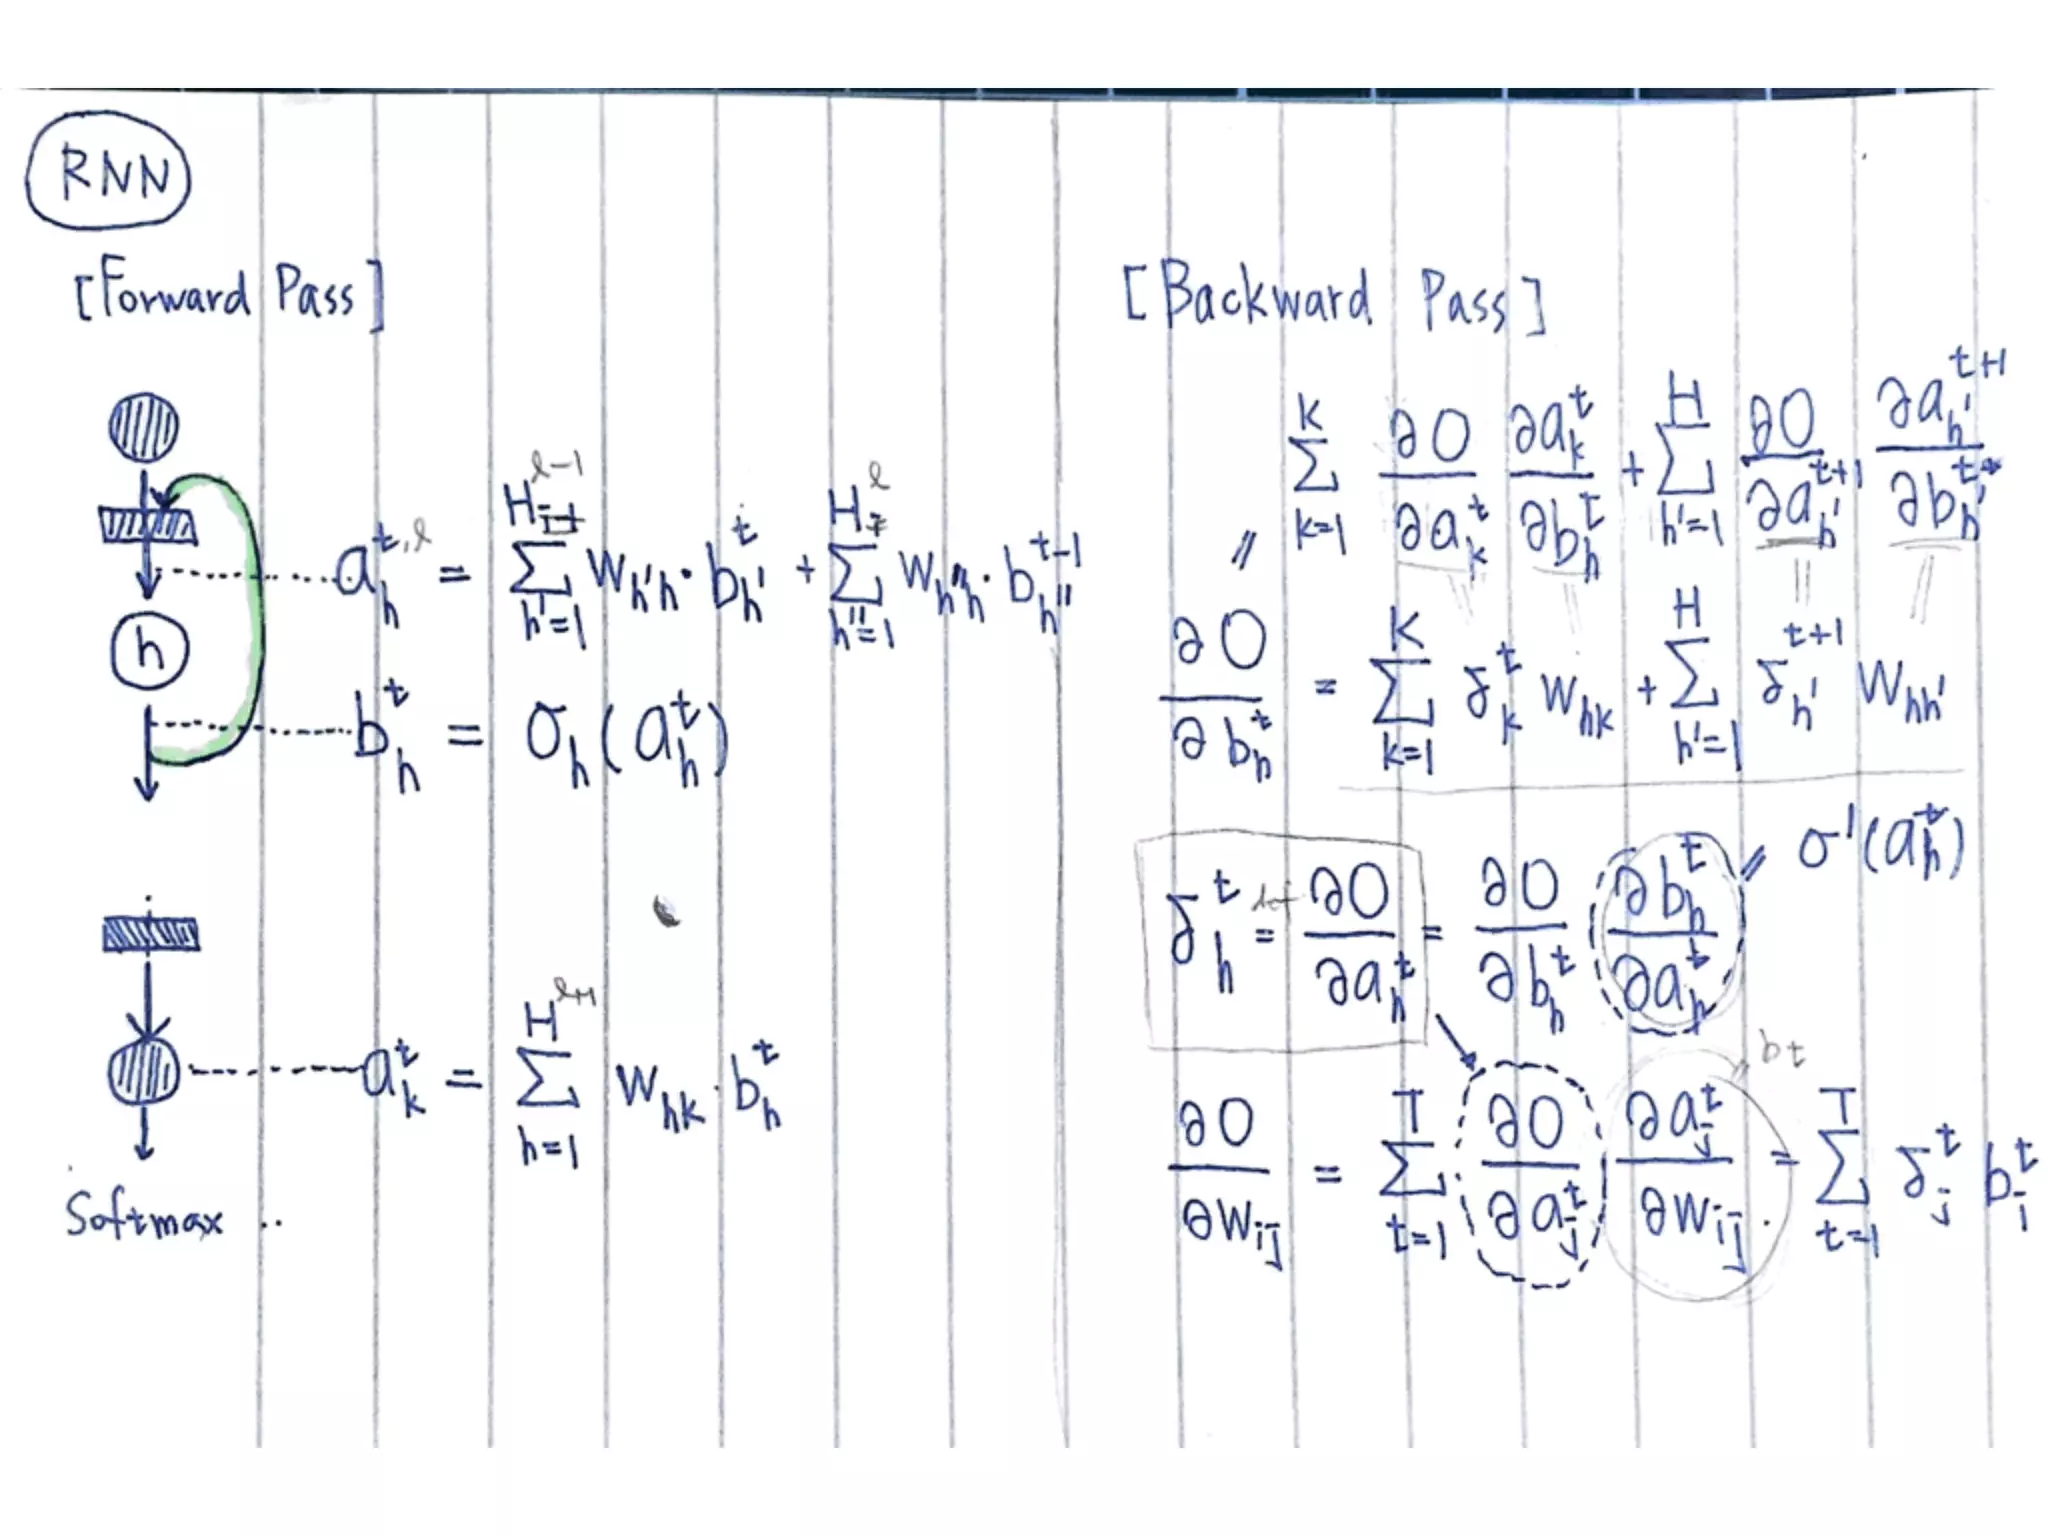 RNN
[Forward Pass]
a_h^{t,l} = Σ_{h'=1}^{H^{l-1}} w_{h'h} · b_{h'}^t + Σ_{h''=1}^{H^l} w_{h''h} · b_{h''}^{t-1}
h
b_h^t = σ_h(a_h^t)
a_k^t = Σ_{h=1}^{H} w_{hk} · b_h^t
Softmax ..
[Backward Pass]
Σ_{k=1}^{K} ∂O/∂a_k^t ∂a_k^t/∂b_h^t + Σ_{h'=1}^{H} ∂O/∂a_{h'}^{t+1} ∂a_{h'}^{t+1}/∂b_h^t
∂O/∂b_h^t = Σ_{k=1}^{K} δ_k^t w_{hk} + Σ_{h'=1}^{H} δ_{h'}^{t+1} w_{hh'}
δ_h^t =^{def} ∂O/∂a_h^t = ∂O/∂b_h^t ∂b_h^t/∂a_h^t = σ'(a_h^t)
bt
∂O/∂w_{ij} = Σ_{t=1}^{T} ∂O/∂a_j^t ∂a_j^t/∂w_{ij} = Σ_{t=1}^{T} δ_j^t b_i^t